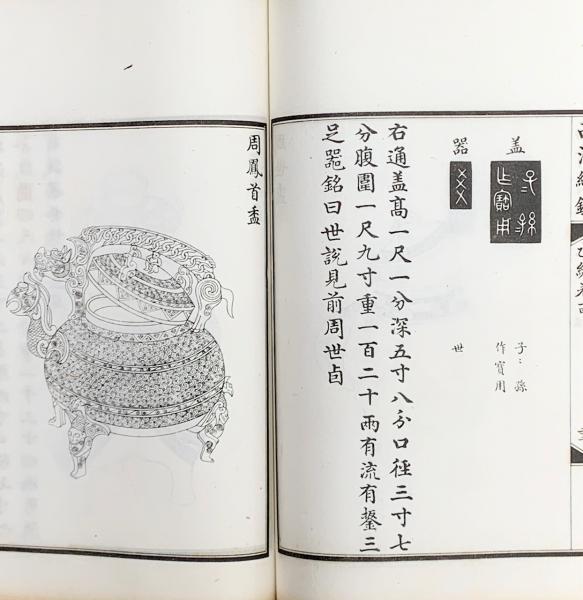 西清續鑑
盖
子〻孫
作寳用
器
世
右通盖髙一尺一分深五寸八分口徑三寸七
分腹圍一尺九寸重一百二十兩有流有鋬三
足器銘曰世說見前周世卣
周鳳首盉